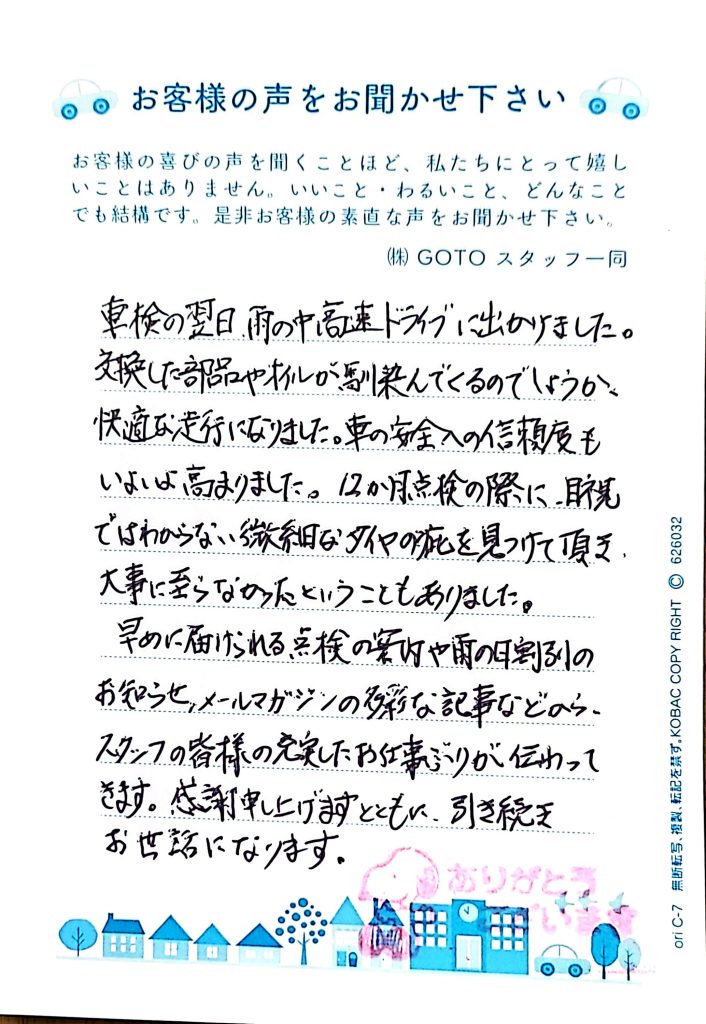 お客様の声をお聞かせ下さい
お客様の喜びの声を聞くことほど、私たちにとって嬉し
いことはありません。いいこと・わるいこと、どんなこと
でも結構です。是非お客様の素直な声をお聞かせ下さい。
㈱ GOTO スタッフ一同
車検の翌日、雨の中高速ドライブに出かけました。
交換した部品やオイルが馴染んでくるのでしょうか、
快適な走行になりました。車の安全への信頼度も
いよいよ高まりました。12か月点検の際に、目視
ではわからない微細なタイヤの疵を見つけて頂き、
大事に至らなかったということもありました。
早めに届けられる点検の案内や雨の日割引の
お知らせ、メールマガジンの多彩な記事などから、
スタッフの皆様の充実したお仕事ぶりが伝わって
きます。感謝申し上げますとともに、引き続き
お世話になります。
ありがとう
ございます
ori C-7 無断転写、複製、転記を禁ず。KOBAC COPY RIGHT © 626032